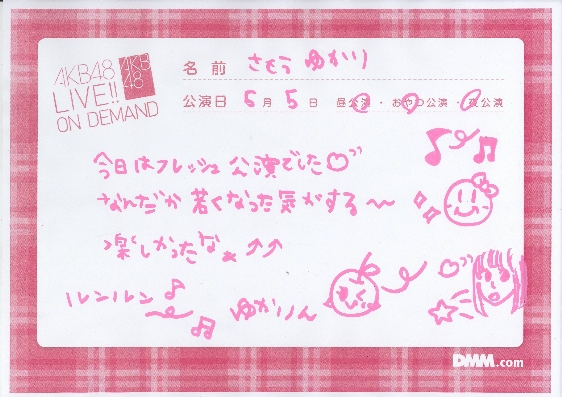 AKB48
LIVE!!
ON DEMAND
AKB
48
名前 さとう ゆかり
公演日 6月5日 昼公演・おやつ公演・夜公演
今日はフレッシュ公演でした♡
なんだか若くなった気がする〜
楽しかったなぁ↑↑
ルンルン♪
ゆかりん
DMM.com